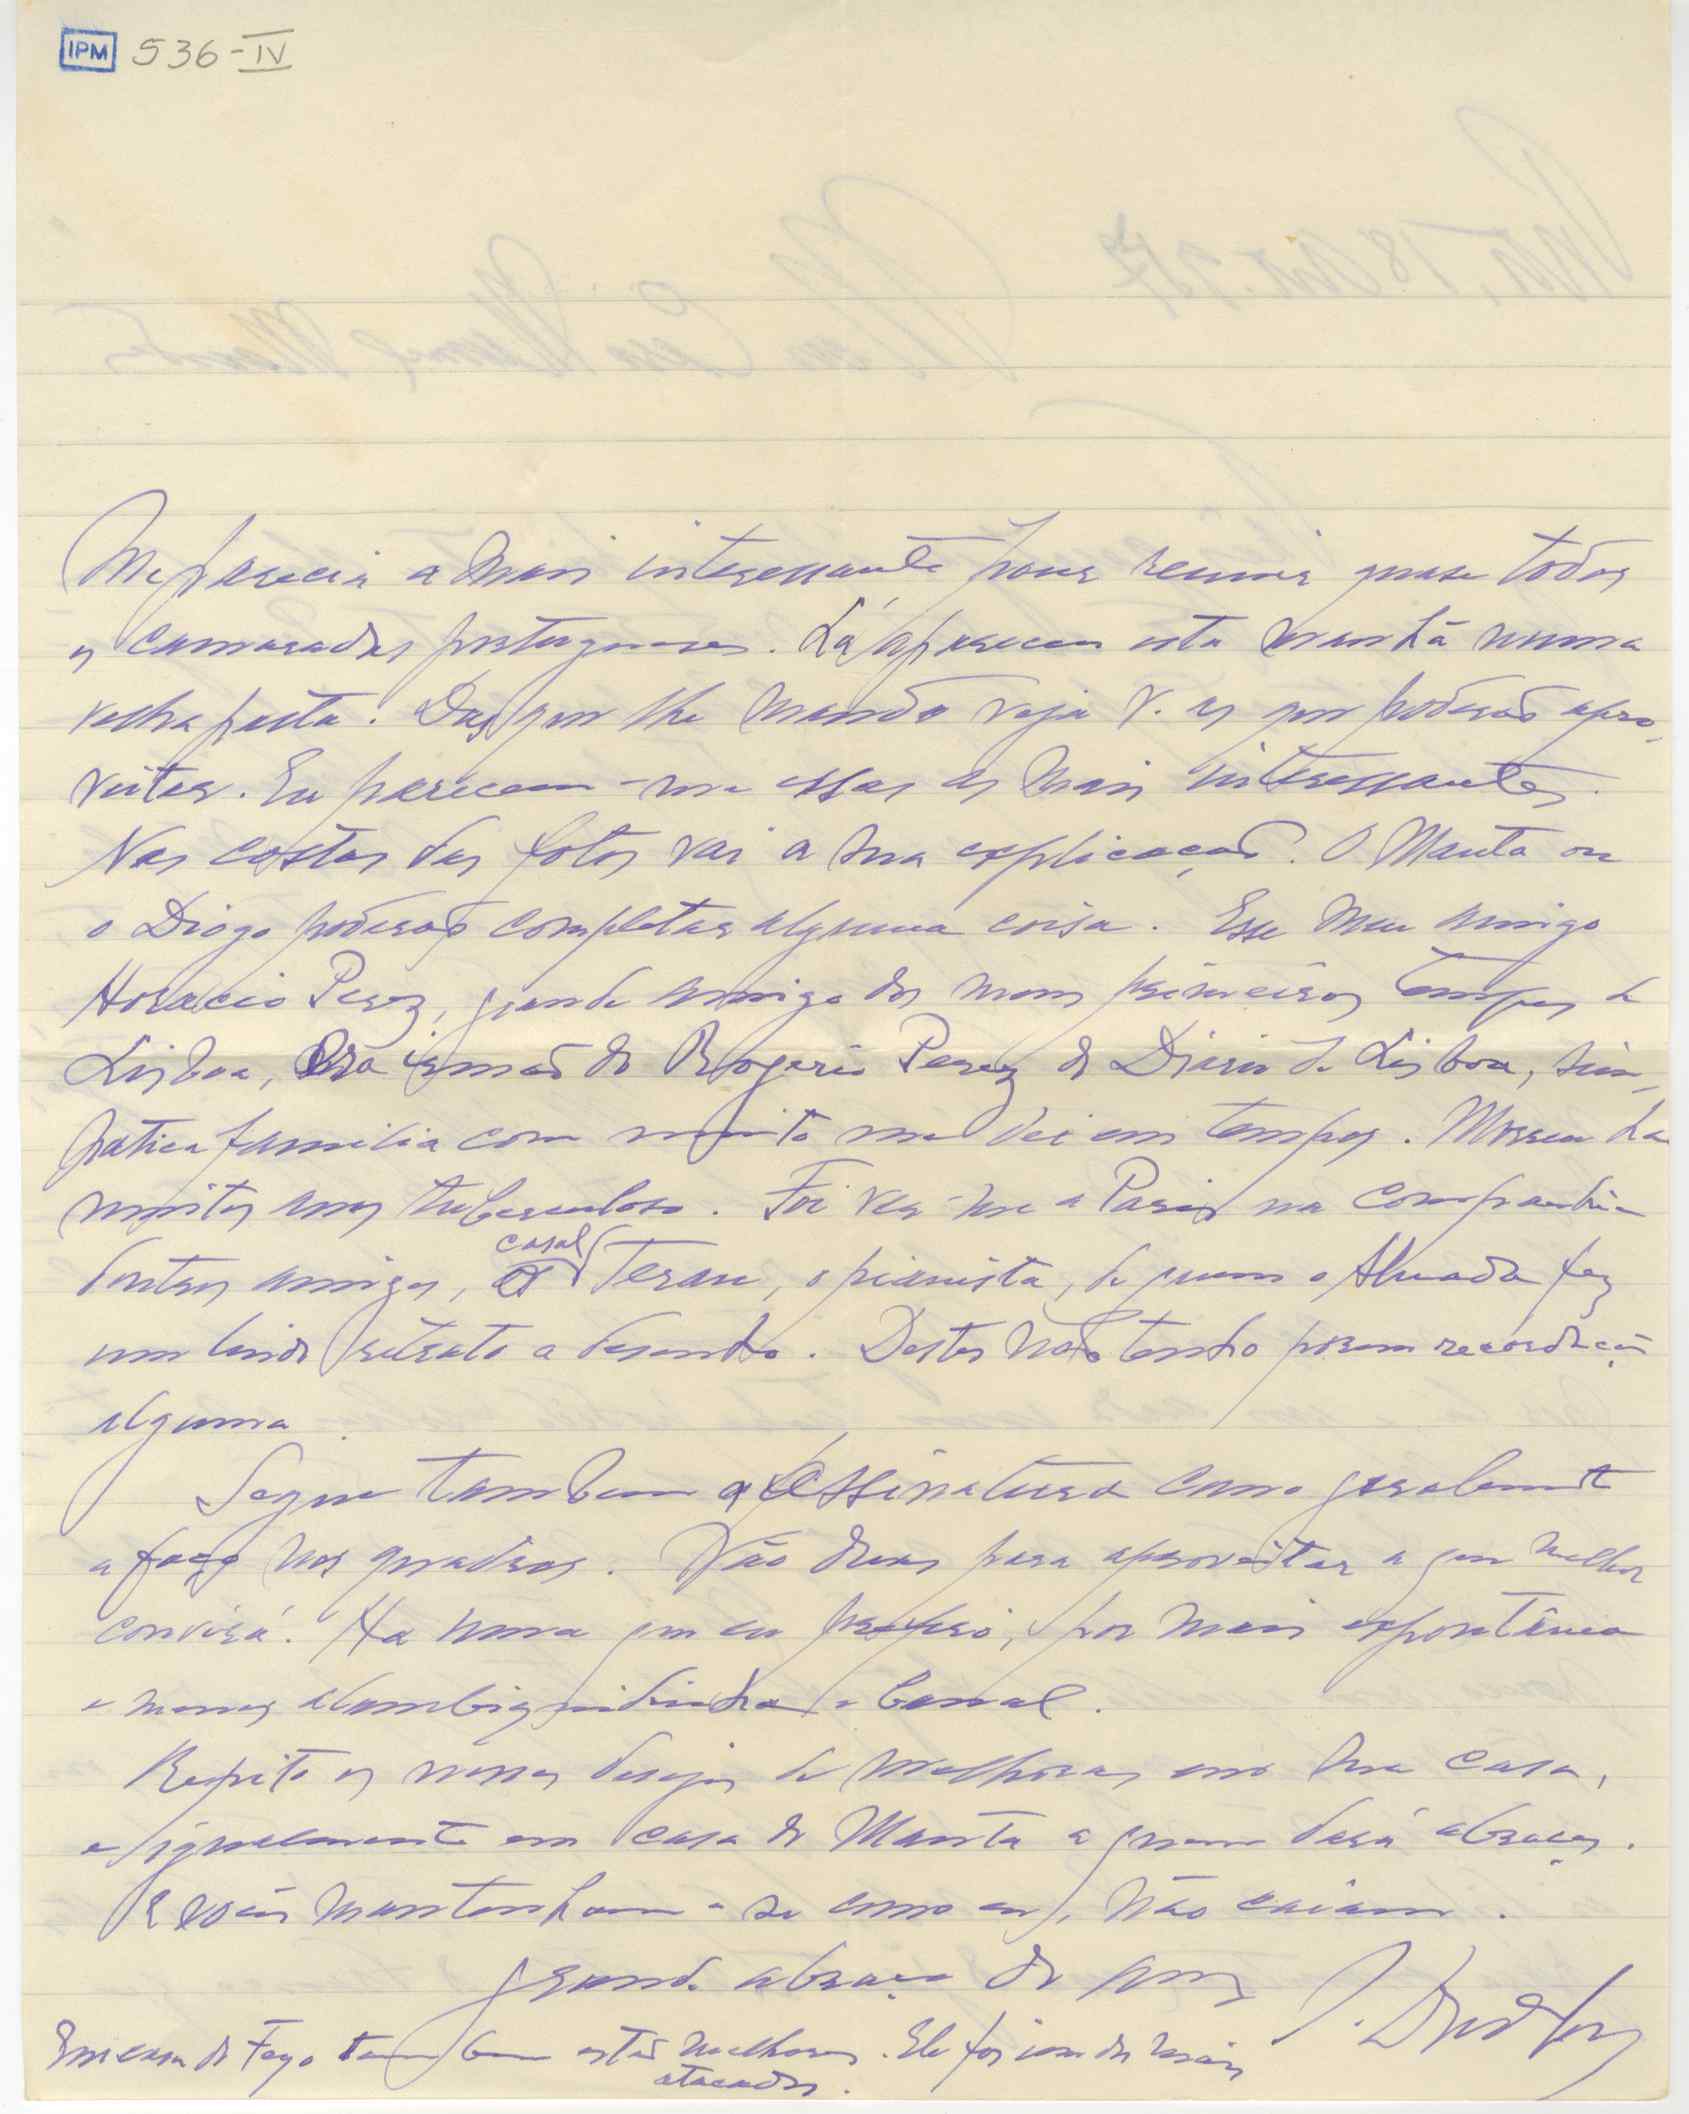 IPM 536-IV
Me parecia a mais interessante por reunir quase todos
os camaradas portugueses. Lá aparecem esta manhã numa
velha pasta. Das que lhe mando veja V. as que poderão apro-
veitar. Eu parecem-me essas as mais interessantes.
Nas costas das fotos vai a sua explicação. O Manta ou
o Diogo poderão completar alguma coisa. Esse meu amigo
Horacio Perez, grande amigo dos meus primeiros tempos de
Lisboa, era irmão do Rogerio Perez do Diario de Lisboa, sim-
patica familia com muito me dei em tempos. Morreu ha
muitos anos tuberculoso. Foi ver-me a Paris na companhia
doutros amigos, casal Teran, o pianista, de quem o Almada fez
um lindo retrato a desenho. Destes não tenho porem recordação
alguma.
Segue tambem a assinatura como geralmente
a faço nos quadros. Vão duas para aproveitar a que melhor
convirá. Ha uma que eu prefiro, por mais expontânea
e menos
banal.
Repito os nossos desejos de melhoras em sua casa,
e igualmente em casa do Manta a quem dará abraços.
E vocês mantenham-se como eu, não caiam.
grande abraço do am.º
Em casa do Fego tambem estão melhores. Ele foi um dos mais
atacados.